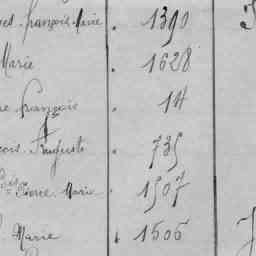 François Marie . 1390
Marie . 1628
François . 14
Auguste . 735
Pierre Marie . 1507
Marie . 1506